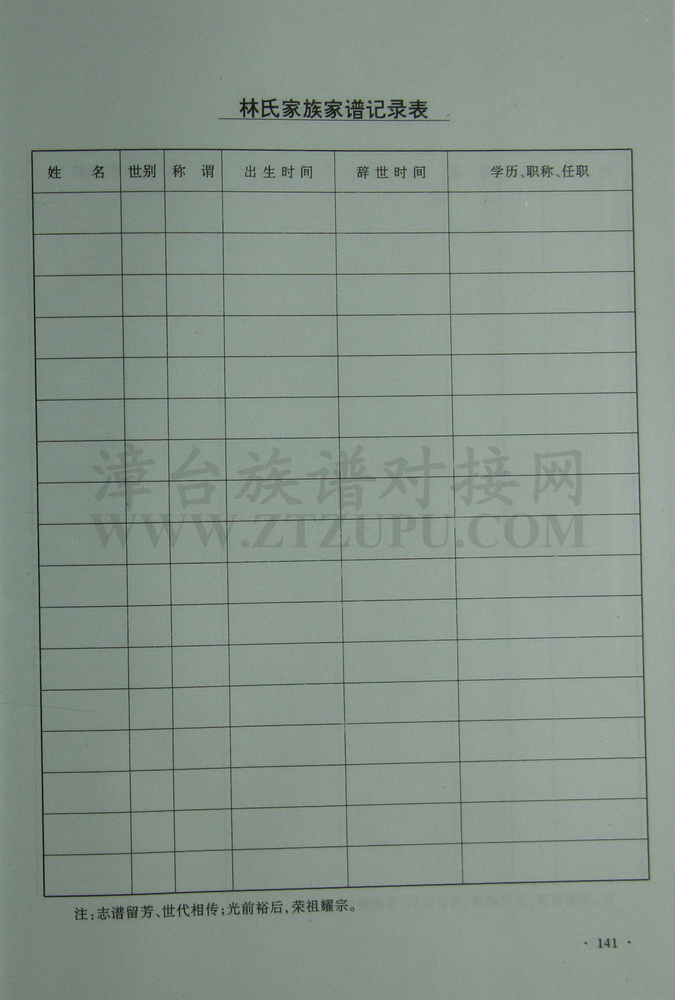 林氏家族家谱记录表
姓 名 世别 称 谓 出生时间 辞世时间 学历、职称、任职
漳台族谱对接网
WWW.ZTZUPU.COM
注：志谱留芳、世代相传；光前裕后，荣祖耀宗。
· 141 ·